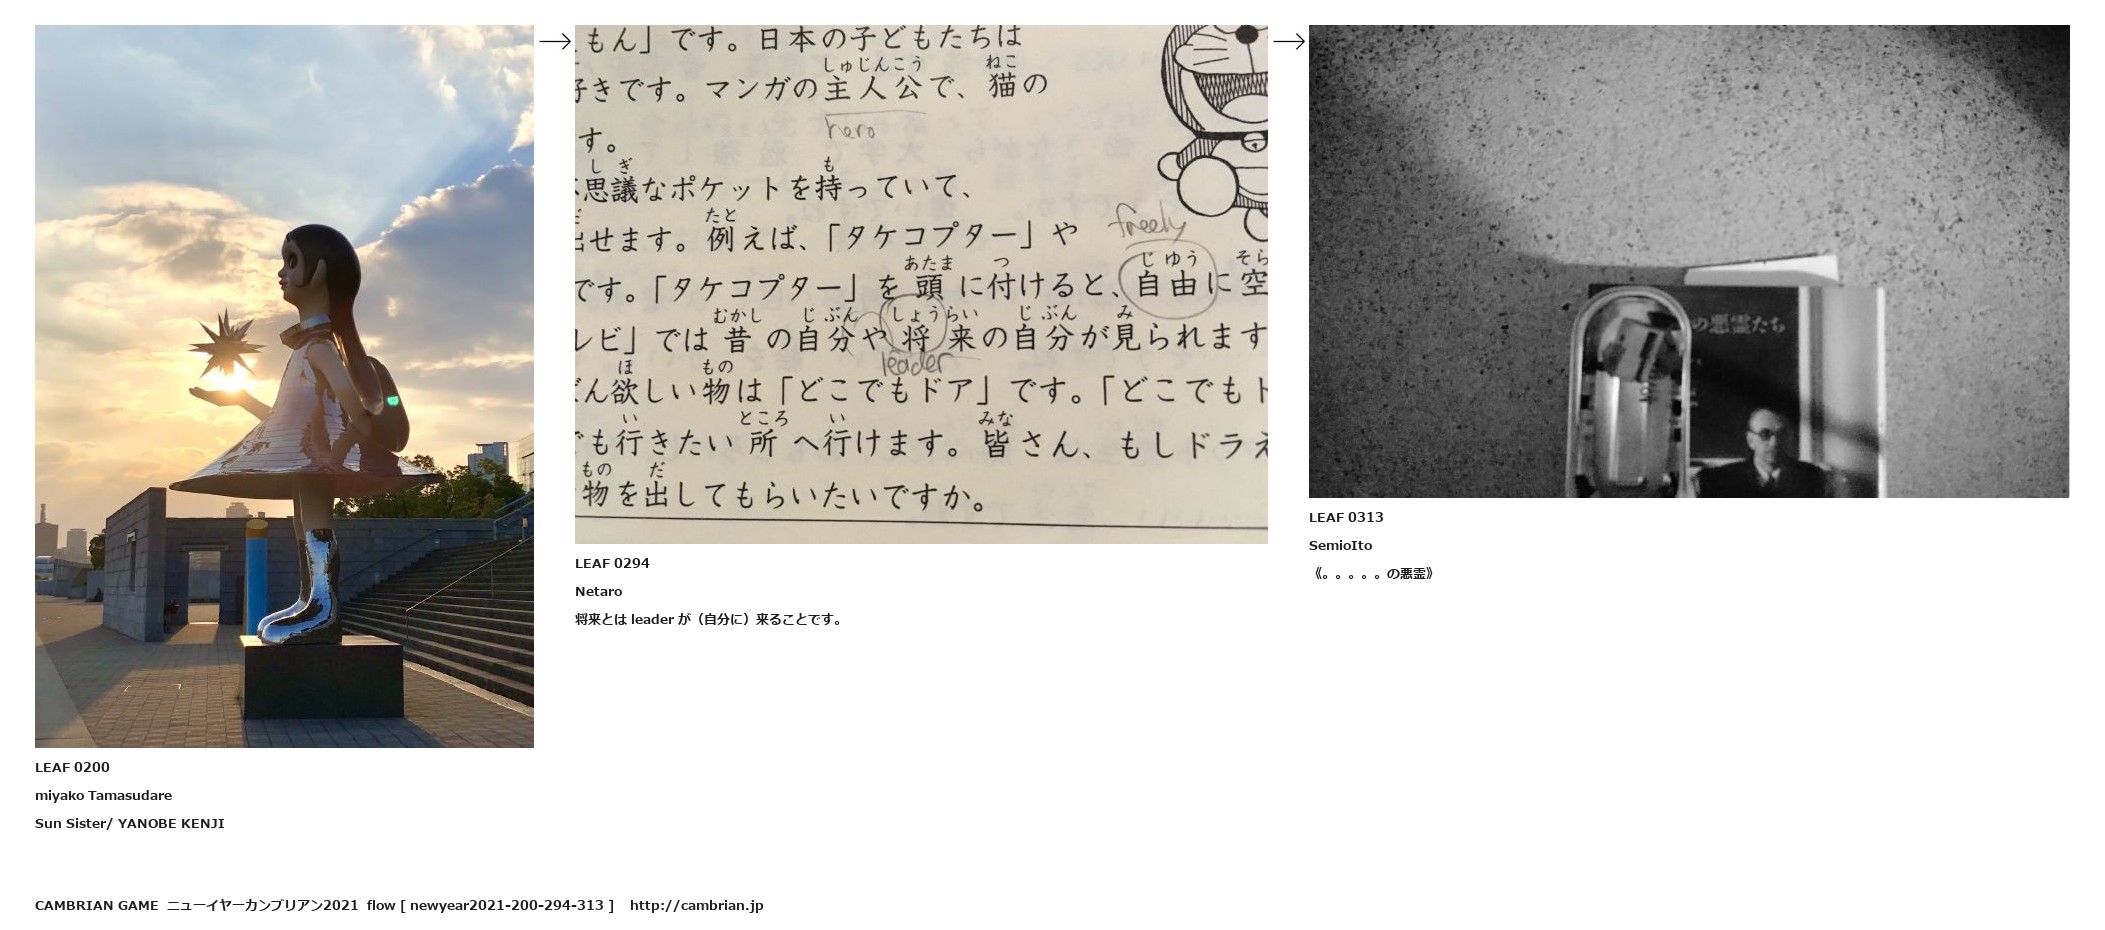 もん」です。日本の子どもたちは
しゅじんこう ねこ
きです。マンガの主人公で、猫の
hero
す。
しぎ も
思議なポケットを持っていて、
たと
せます。例えば、「タケコプター」や
freely
あたま つ じゆう そら
です。「タケコプター」を頭に付けると、自由に空
むかし じぶん しょうらい じぶん み
レビ」では昔の自分や将来の自分が見られます
leader
ほ もの
ん欲しい物は「どこでもドア」です。「どこでも
い ところ い みな
でも行きたい所へ行けます。皆さん、もしドラえ
もの だ
物を出してもらいたいですか。
の悪霊たち
LEAF 0200
miyako Tamasudare
Sun Sister/ YANOBE KENJI
LEAF 0294
Netaro
将来とは leader が（自分に）来ることです。
LEAF 0313
SemioIto
《。。。。。の悪霊》
CAMBRIAN GAME ニューイヤーカンブリアン2021 flow [ newyear2021-200-294-313 ] http://cambrian.jp